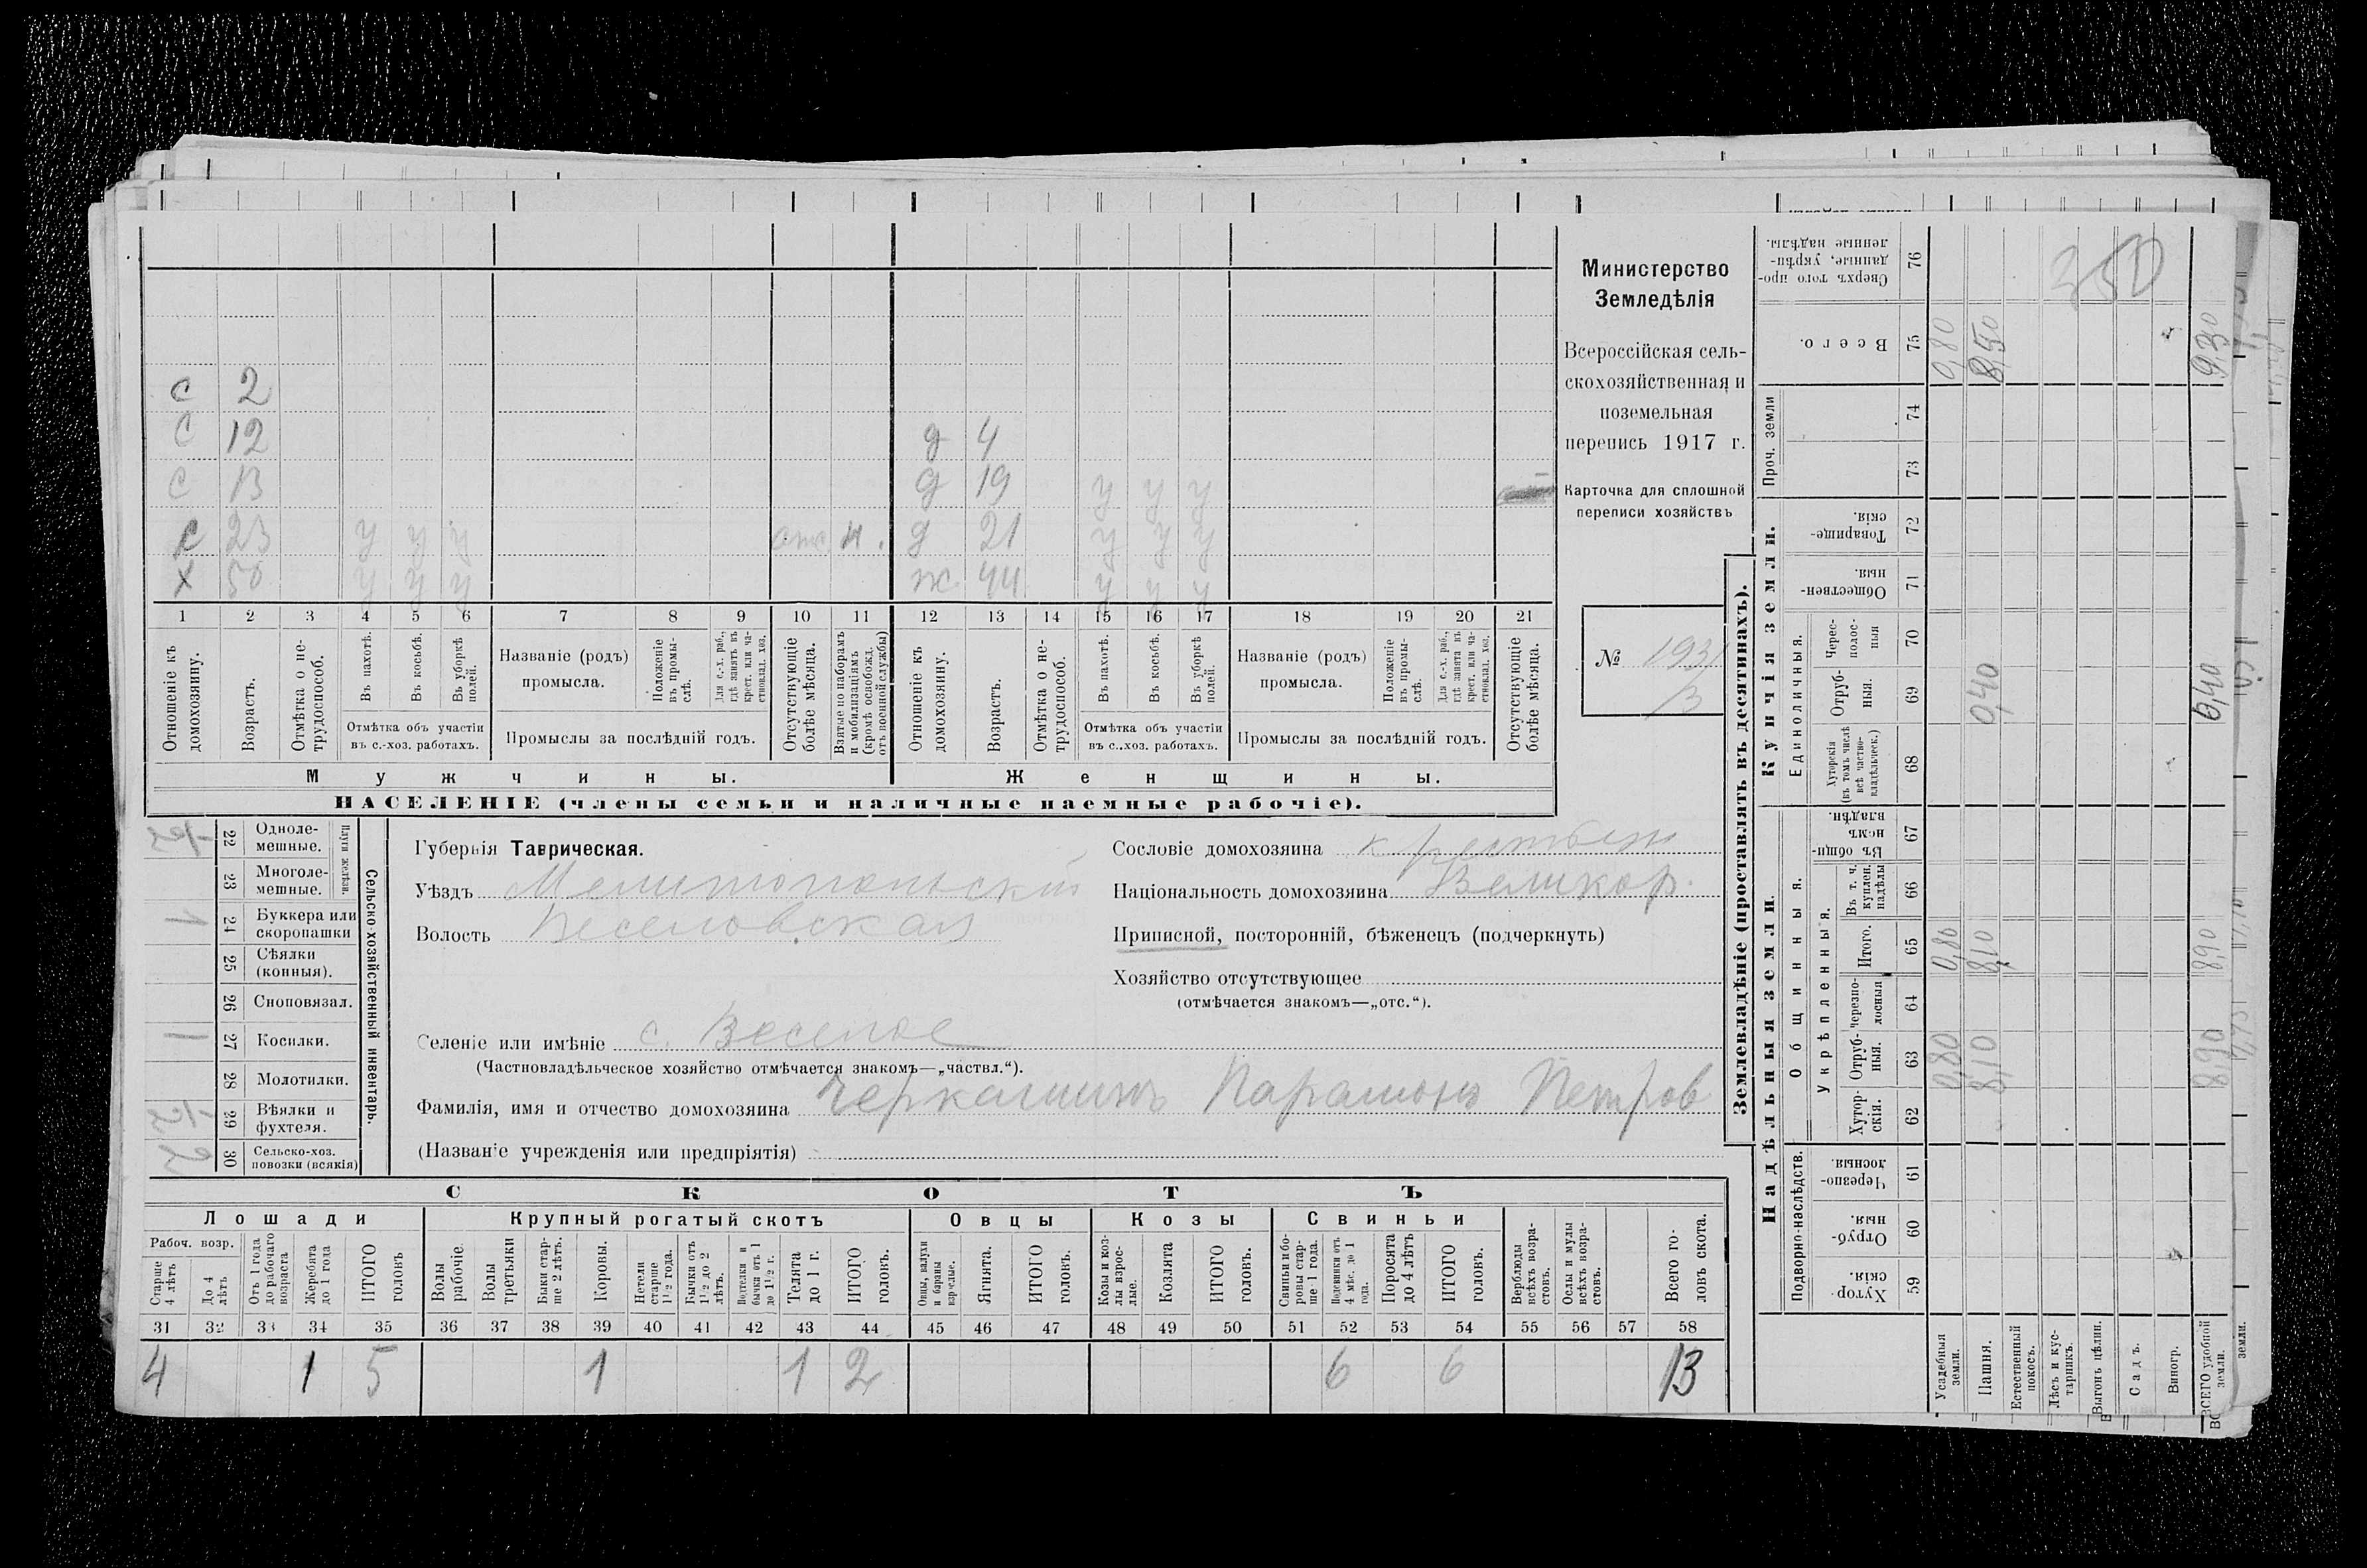 с 2
с 12 д 4
с 13 д 19 у у у
с 23 у у у отс. 4. д 21 у у у
х 50 у у у ж 44 у у у
1 2 3 4 5 6 7 8 9 10 11 12 13 14 15 16 17 18 19 20 21
Отношеніе къ домохозяину.
Возрастъ.
Отмѣтка о не-трудоспособ.
Въ пахотѣ.
Въ косьбѣ.
Въ уборкѣ полей.
Отмѣтка объ участіи
въ с.-хоз. работахъ.
Названіе (родъ)
промысла.
Положеніе въ промы-слѣ.
Для с.-х. раб., гдѣ занятъ въ крест. или ча-стновлад. хоз.
Промыслы за послѣдній годъ.
Отсутствующіе болѣе мѣсяца.
Взятые по наборамъ и мобилизаціямъ (кромѣ освобожд. отъ военной службы)
Отношеніе къ домохозяину.
Возрастъ.
Отмѣтка о не-трудоспособ.
Въ пахотѣ.
Въ косьбѣ.
Въ уборкѣ полей.
Отмѣтка объ участіи
въ с.-хоз. работахъ.
Названіе (родъ)
промысла.
Положеніе въ промы-слѣ.
Для с.-х. раб., гдѣ занята въ крест. или ча-стновлад. хоз.
Промыслы за послѣдній годъ.
Отсутствующіе болѣе мѣсяца.
Мужчины.
Женщины.
НАСЕЛЕНІЕ (члены семьи и наличные наемные рабочіе).
Министерство
Земледѣлія
Всероссійская сель-
скохозяйственная и
поземельная
перепись 1917 г.
Карточка для сплошной
переписи хозяйствъ
№ 1931
13
Сельско-хозяйственный инвентарь.
Плуги желѣзн.
22 Однолемешные.
23 Многолемешные.
1 24 Буккера или скоропашки
25 Сѣялки (конныя).
26 Сноповязал.
1 27 Косилки.
28 Молотилки.
1/2 29 Вѣялки и фухтеля.
2 30 Сельско-хоз. повозки (всякія)
Губернія Таврическая.
Уѣздъ Мелитопольскій
Волость Веселовская
Селеніе или имѣніе с. Веселое
(Частновладѣльческое хозяйство отмѣчается знакомъ—„частвл.“).
Фамилія, имя и отчество домохозяина Черкашинъ Парамонъ Петров
(Названіе учрежденія или предпріятія)
Сословіе домохозяина крестьян
Національность домохозяина Великор.
Приписной, посторонній, бѣженецъ (подчеркнуть)
Хозяйство отсутствующее
(отмѣчается знакомъ—„отс.“).
СКОТЪ
Лошади
Крупный рогатый скотъ
Овцы
Козы
Свиньи
Рабоч. возр.
Старше 4 лѣтъ
До 4 лѣтъ
Отъ 1 года до рабочаго возраста
Жеребята до 1 года
ИТОГО головъ
Волы рабочіе.
Волы третьяки
Быки стар-ше 2 лѣтъ.
Коровы.
Нетели старше 1 1/2 года.
Бычки отъ 1 1/2 до 2 лѣтъ.
Подтелки и бычки отъ 1 до 1 1/2 г.
Телята до 1 г.
ИТОГО головъ.
Овцы, валухи и бараны взрослые.
Ягнята.
ИТОГО головъ.
Козы и коз-лы взрос-лые.
Козлята
ИТОГО головъ.
Свиньи и бо-ровы стар-ше 1 года.
Подсвинки отъ 4 мѣс. до 1 года.
Поросята до 4 лѣтъ
ИТОГО головъ.
Верблюды всѣхъ возра-стовъ.
Ослы и мулы всѣхъ возра-стовъ.
Всего го-ловъ скота.
31 32 33 34 35 36 37 38 39 40 41 42 43 44 45 46 47 48 49 50 51 52 53 54 55 56 57 58
4 1 5 1 1 2 6 6 13
Землевладѣніе (проставлять въ десятинахъ).
Надѣльныя земли.
Купчія земли.
Проч. земли
Подворно-наслѣдств.
Общинныя.
Укрѣпленныя.
Единоличныя.
Хутор-скія. 59
Отруб-ныя. 60
Черезпо-лосныя. 61
Хутор-скія. 62
Отруб-ныя. 63
Черезпо-лосныя 64
Итого. 65
Въ т. ч. куплен. надѣлы 66
Въ общин-номъ владѣн. 67
Хуторскія (въ томъ числѣ всѣ частно-владѣльческ.) 68
Отруб-ныя. 69
Черес-полос-ныя 70
Обществен-ныя. 71
Товарище-скія. 72
73
74
Всего. 75
Сверхъ того про-данные, укрѣп-ленные надѣлы. 76
Усадебныя земли. 0,80 0,80 0,80
Пашня. 8,10 8,10 0,40 8,50
Естественный покосъ.
Лѣсъ и кус-тарникъ.
Выгонъ цѣлин.
Садъ.
Виногр.
ВСЕГО удобной земли. 8,90 8,90 0,40 9,30
350
земли.